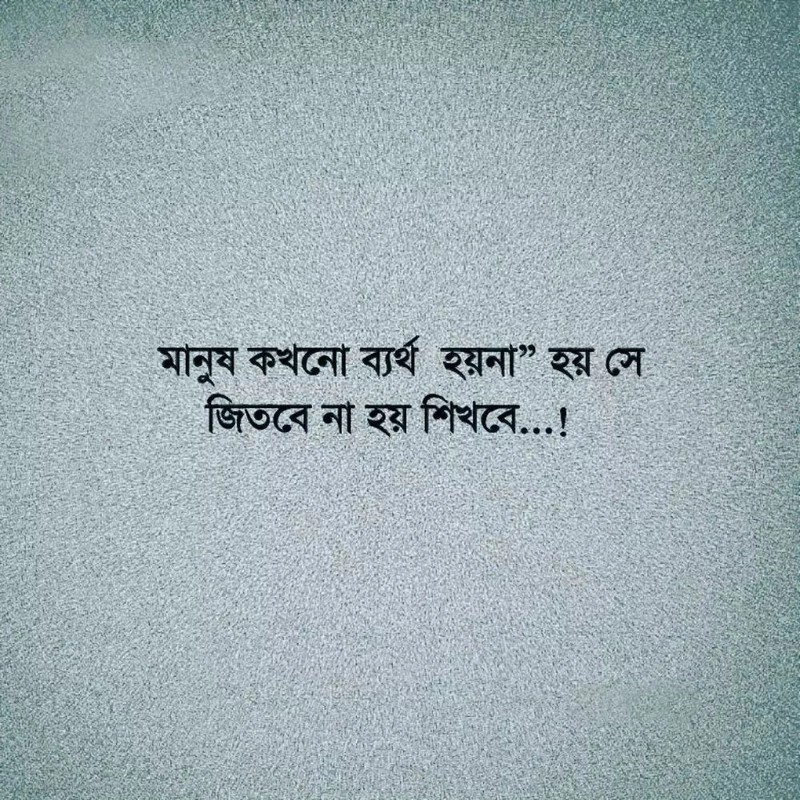 মানুষ কখনো ব্যর্থ হয়না” হয় সে
জিতবে না হয় শিখবে...!